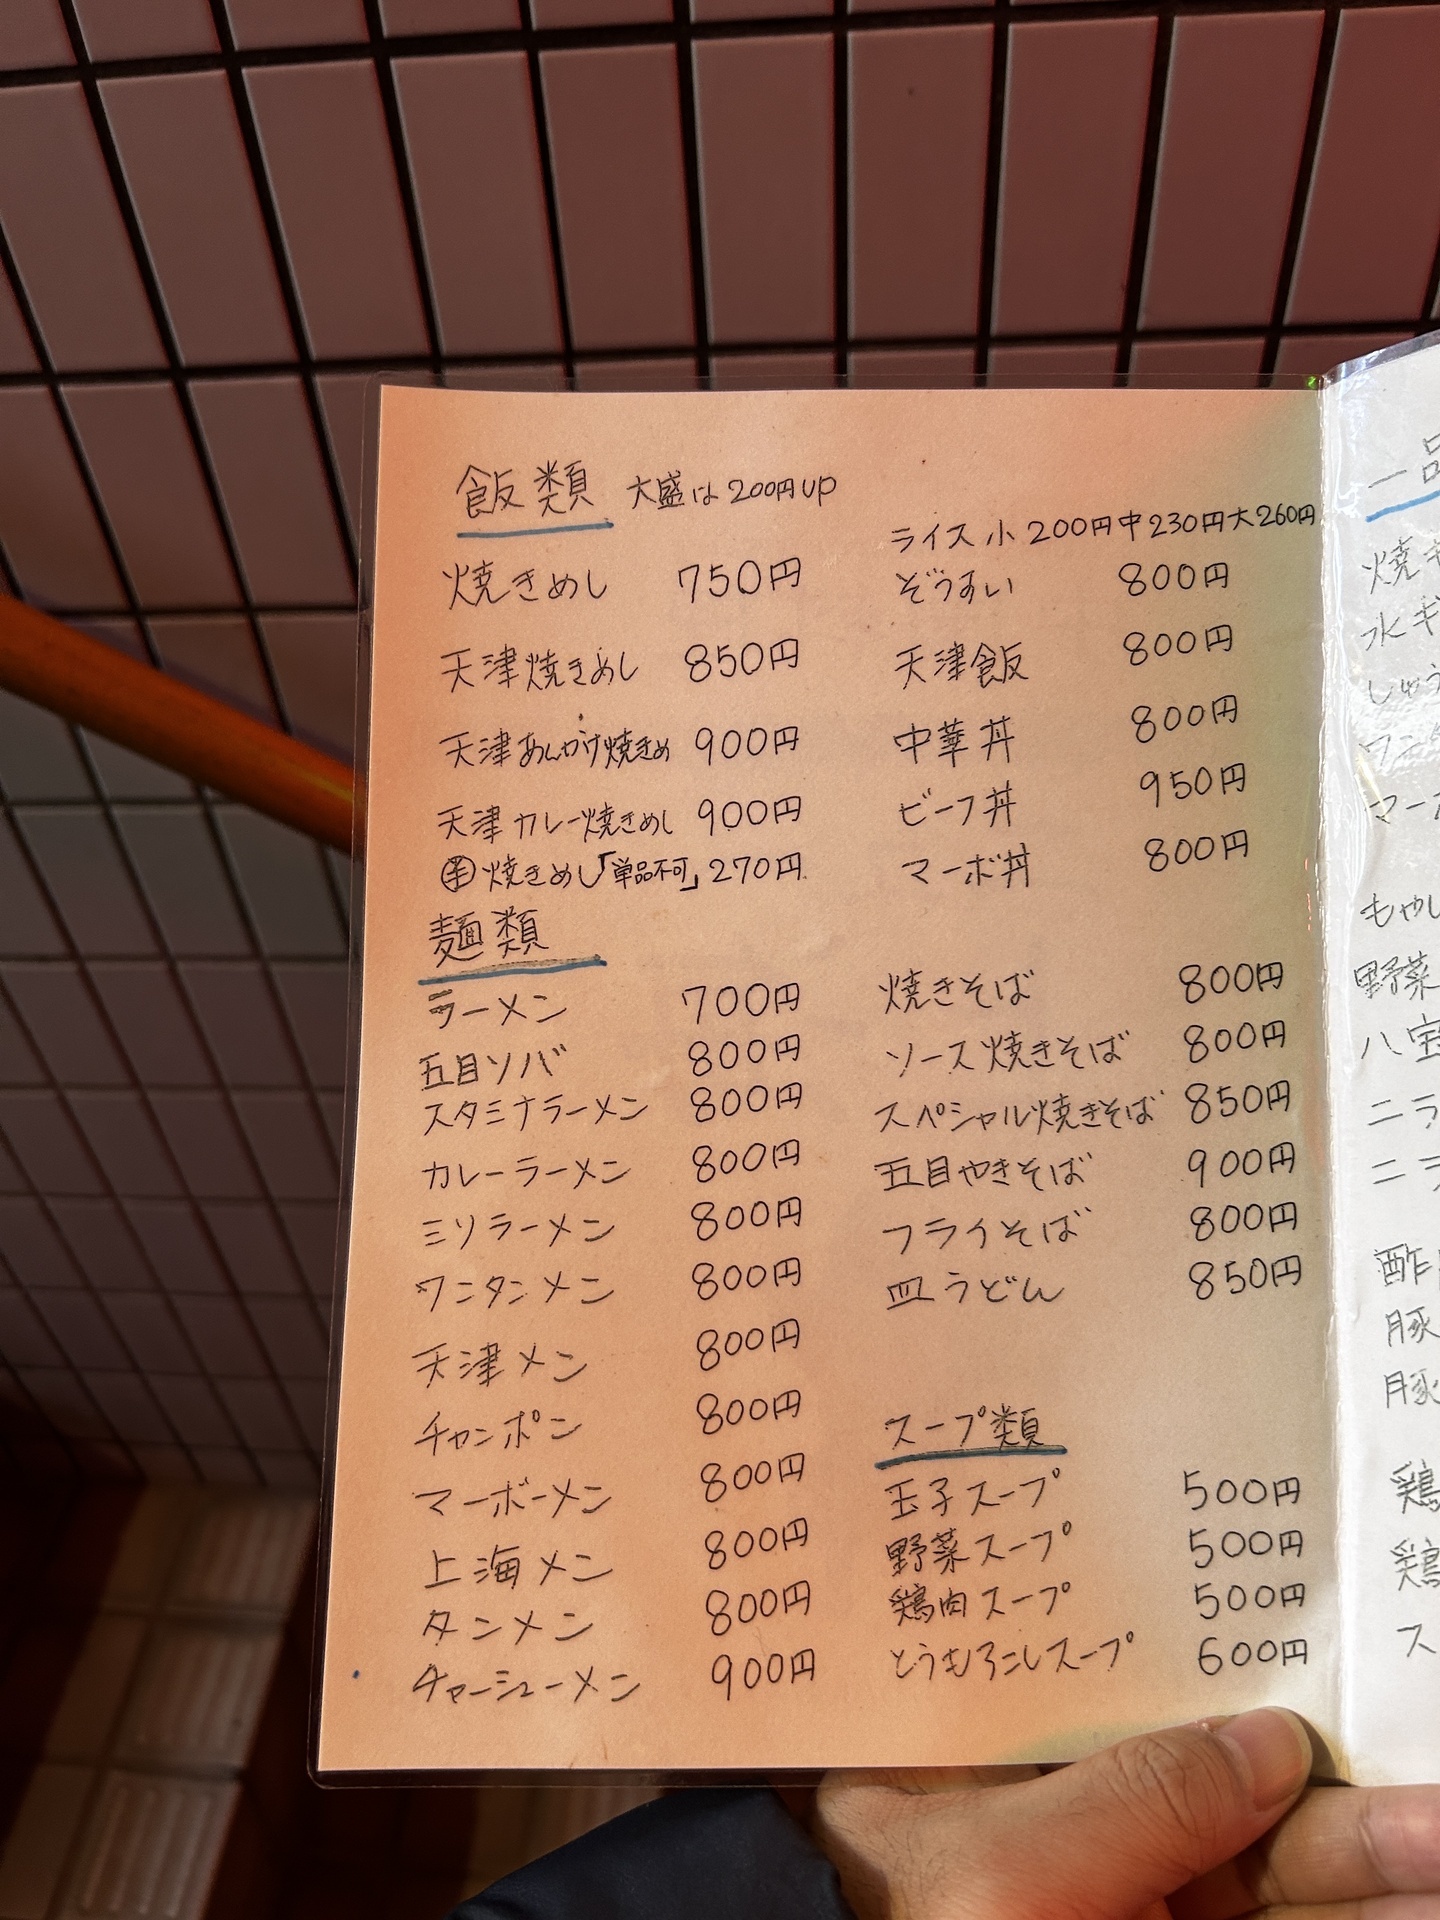 飯類 大盛は200円up
焼きめし 750円
天津焼きめし 850円
天津あんかけ焼きめ 900円
天津カレー焼きめし 900円
焼きめし「単品不可」270円
ライス 小 200円 中 230円 大 260円
ぞうすい 800円
天津飯 800円
中華丼 800円
ビーフ丼 950円
マーボ丼 800円
麺類
ラーメン 700円
五目ソバ 800円
スタミナラーメン 800円
カレーラーメン 800円
ミソラーメン 800円
ワンタンメン 800円
天津メン 800円
チャンポン 800円
マーボーメン 800円
上海メン 800円
タンメン 800円
チャーシューメン 900円
焼きそば 800円
ソース焼きそば 800円
スペシャル焼きそば 850円
五目やきそば 900円
フライそば 800円
皿うどん 850円
スープ類
玉子スープ 500円
野菜スープ 500円
鶏肉スープ 500円
とうもろこしスープ 600円
一品
焼き
水ギ
しゅう
ワンタ
マーボ
もやし
野菜
八宝
ニラ
ニラ
酢
豚
豚
鶏
鶏
ス